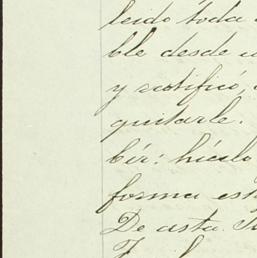 leido toda
ble desde
y ratificó,
quitarle.
bír: hícelo
forma est
De asta.